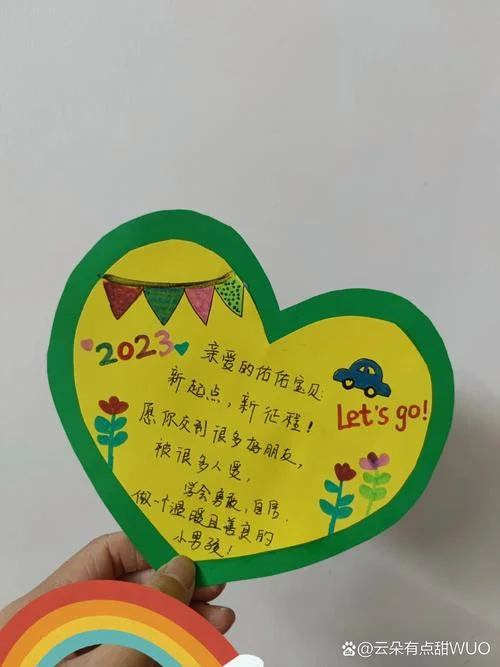 2023
亲爱的佑佑宝贝:
新起点,新征程!
Let's go!
愿你交到很多好朋友,
被很多人爱,
学会勇敢,自居,
做一个温暖且善良的
小男孩!
云朵有点甜WUO